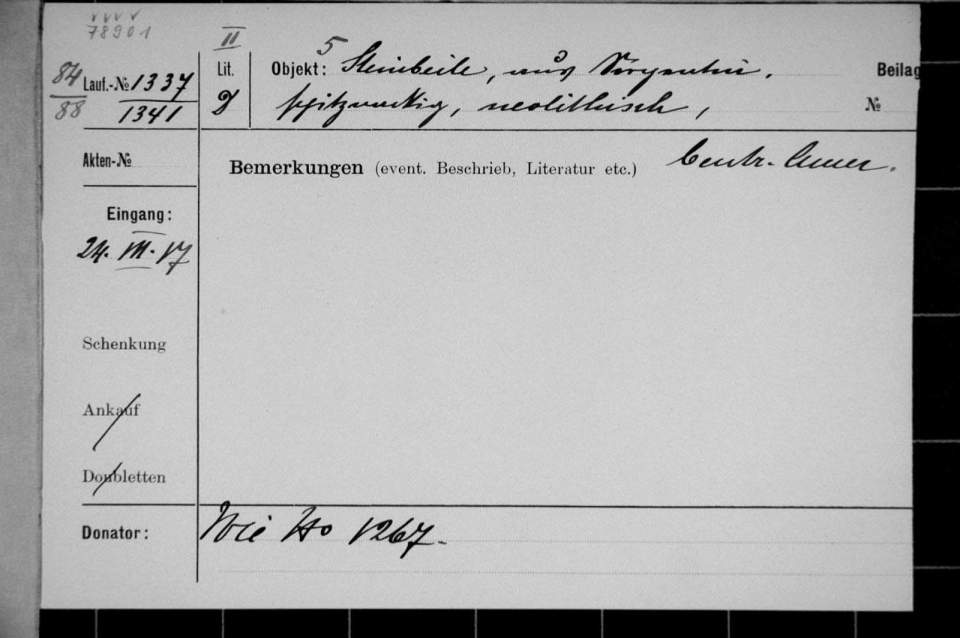 78901
II
84
88
Lauf.-№ 1337
1341
Lit.
D
Objekt: 5 Steinbeile, aus Serpentin.
spitznackig, neolithisch,
Beilag
№
Akten-№
Bemerkungen (event. Beschrieb, Literatur etc.)
Centr.
Eingang:
24. VII. 17
Schenkung
Ankauf
Doubletten
Donator: Wie No 1267.